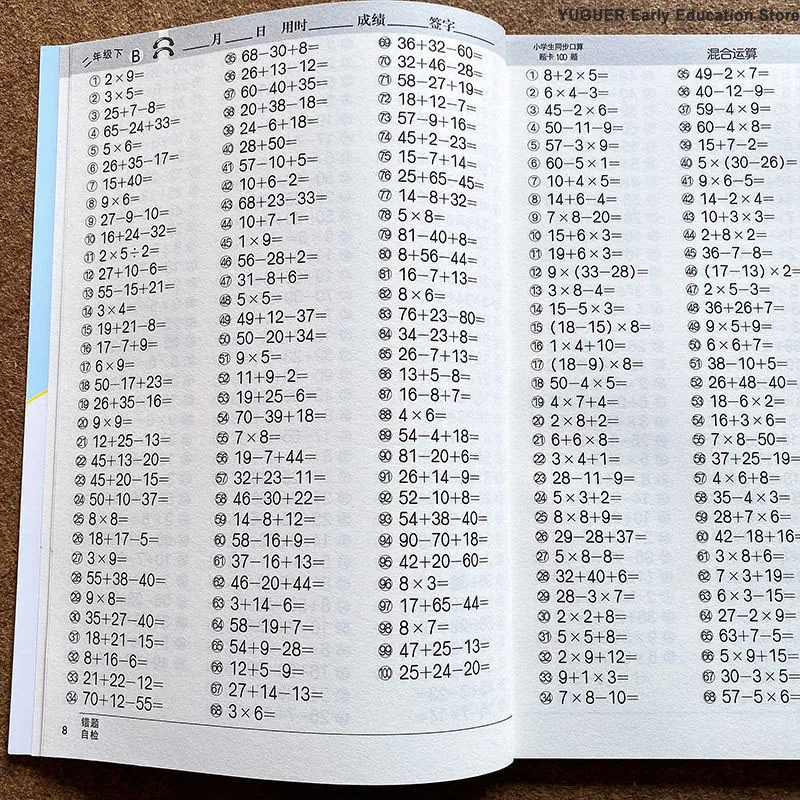 YUGUER Early Education Store
二年级下 B 月 日 用时 成绩 签字
① 2×9=
② 3×5=
③ 25+7-8=
④ 65-24+33=
⑤ 5×6=
⑥ 26+35-17=
⑦ 15+40=
⑧ 9×6=
⑨ 27-9-10=
⑩ 16+24-32=
⑪ 2×5÷2=
⑫ 27+10-6=
⑬ 55-15+21=
⑭ 3×4=
⑮ 19+21-8=
⑯ 17-7+9=
⑰ 6×9=
⑱ 50-17+23=
⑲ 26+35-16=
⑳ 9×9=
㉑ 12+25-13=
㉒ 45+13-20=
㉓ 45+20-15=
㉔ 50+10-37=
㉕ 8×8=
㉖ 18+17-5=
㉗ 3×9=
㉘ 55+38-40=
㉙ 9×8=
㉚ 35+27-40=
㉛ 18+21-15=
㉜ 8+16-6=
㉝ 21+22-12=
㉞ 70+12-55=
㉟ 68-30+8=
㊱ 26+13-12=
㊲ 60-40+35=
㊳ 20+38-18=
㊴ 24-6+18=
㊵ 28+50=
㊶ 57-10+5=
㊷ 10+6-2=
㊸ 68+23-33=
㊹ 10+7-1=
㊺ 1×9=
㊻ 56-28+2=
㊼ 31-8+6=
㊽ 5×5=
㊾ 49+12-37=
㊿ 50-20+34=
51 9×5=
52 11+9-2=
53 19+25-6=
54 70-39+18=
55 7×8=
56 19-7+44=
57 32+23-11=
58 46-30+22=
59 14-8+12=
60 58-16+9=
61 37-16+13=
62 46-20+44=
63 3+14-6=
64 58-19+7=
65 54+9-28=
66 12+5-9=
67 27+14-13=
68 3×6=
69 36+32-60=
70 32+46-28=
71 58-27+19=
72 18+12-7=
73 57-9+16=
74 45+2-23=
75 15-7+14=
76 25+65-45=
77 14-8+32=
78 5×8=
79 81-40+8=
80 8+56-44=
81 16-7+13=
82 8×6=
83 76+23-80=
84 34-23+8=
85 26-7+13=
86 13+5-8=
87 16-8+7=
88 4×6=
89 54-4+18=
90 81-20+6=
91 26+14-9=
92 52-10+8=
93 54+38-40=
94 90-70+18=
95 42+20-60=
96 8×3=
97 17+65-44=
98 8×7=
99 47+25-13=
100 25+24-20=
8 错题
自检
小学生同步口算
题卡 100 题
混合运算
① 8+2×5=
② 6×4-3=
③ 45-2×6=
④ 50-11-9=
⑤ 57-3×9=
⑥ 60-5×1=
⑦ 10+4×5=
⑧ 14+6-4=
⑨ 7×8-20=
⑩ 15+6×3=
⑪ 19+6×3=
⑫ 9×(33-28)=
⑬ 3×8-4=
⑭ 15-5×3=
⑮ (18-15)×8=
⑯ 1×4+10=
⑰ (18-9)×8=
⑱ 50-4×5=
⑲ 4×7+4=
⑳ 2×8+2=
㉑ 6+6×8=
㉒ 3×4+1=
㉓ 28-11-9=
㉔ 5×3+2=
㉕ 8×8+9=
㉖ 29-28+37=
㉗ 5×8-8=
㉘ 32+40+6=
㉙ 28-3×7=
㉚ 2×2+8=
㉛ 5×5+8=
㉜ 2×9+12=
㉝ 9+1×3=
㉞ 7×8-10=
㉟ 49-2×7=
㊱ 40-12-9=
㊲ 59-4×9=
㊳ 60-4×8=
㊴ 15+7-2=
㊵ 5×(30-26)=
㊶ 9×6-5=
㊷ 14-2×4=
㊸ 10+3×3=
㊹ 2+8×2=
㊺ 36-7-8=
㊻ (17-13)×2=
㊼ 2×5-3=
㊽ 36+26+7=
㊾ 9×5+9=
㊿ 6×6+7=
51 38-10+5=
52 26+48-40=
53 18-6×2=
54 16+3×6=
55 7×8-50=
56 37+25-19=
57 4×6+8=
58 35-4×3=
59 28+7×6=
60 42-18+16=
61 3×8+6=
62 7×3+19=
63 6×3-15=
64 27-2×9=
65 63+7-5=
66 5×9+15=
67 30-3×5=
68 57-5×6=